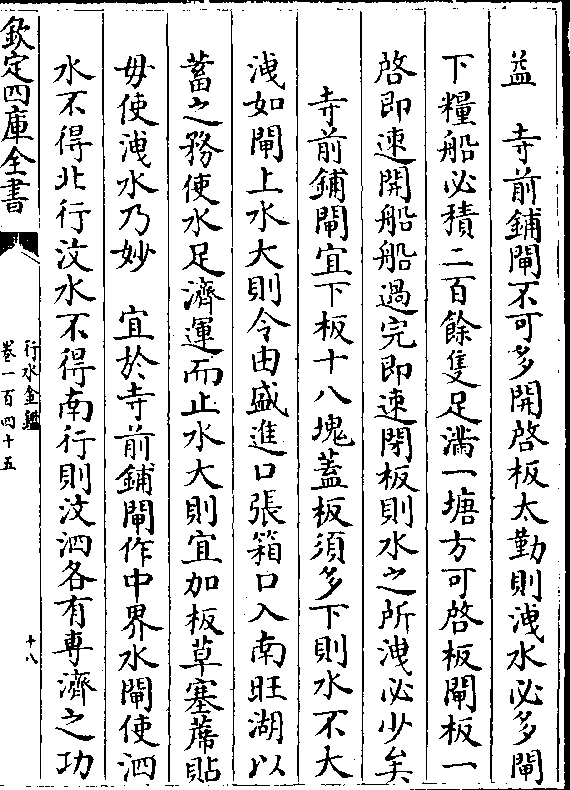 益　寺前鋪閘不可多開啓板太勤則洩水必多閘
下糧船必積二百餘隻足滿一塘方可啓板閘板一
啓即速開船船過完即速閉板則水之所洩必少矣
寺前鋪閘宜下板十八塊蓋板須多下則水不大
洩如閘上水大則令由盛進口張箱口入南旺湖以
蓄之務使水足濟運而止水大則宜加板草塞蓆貼
毋使洩水乃妙　宜於寺前鋪閘作中界水閘使泗
水不得北行汶水不得南行則汶泗各有專濟之功
欽定四庫全書
行水金鑑
卷一百四十五
十八